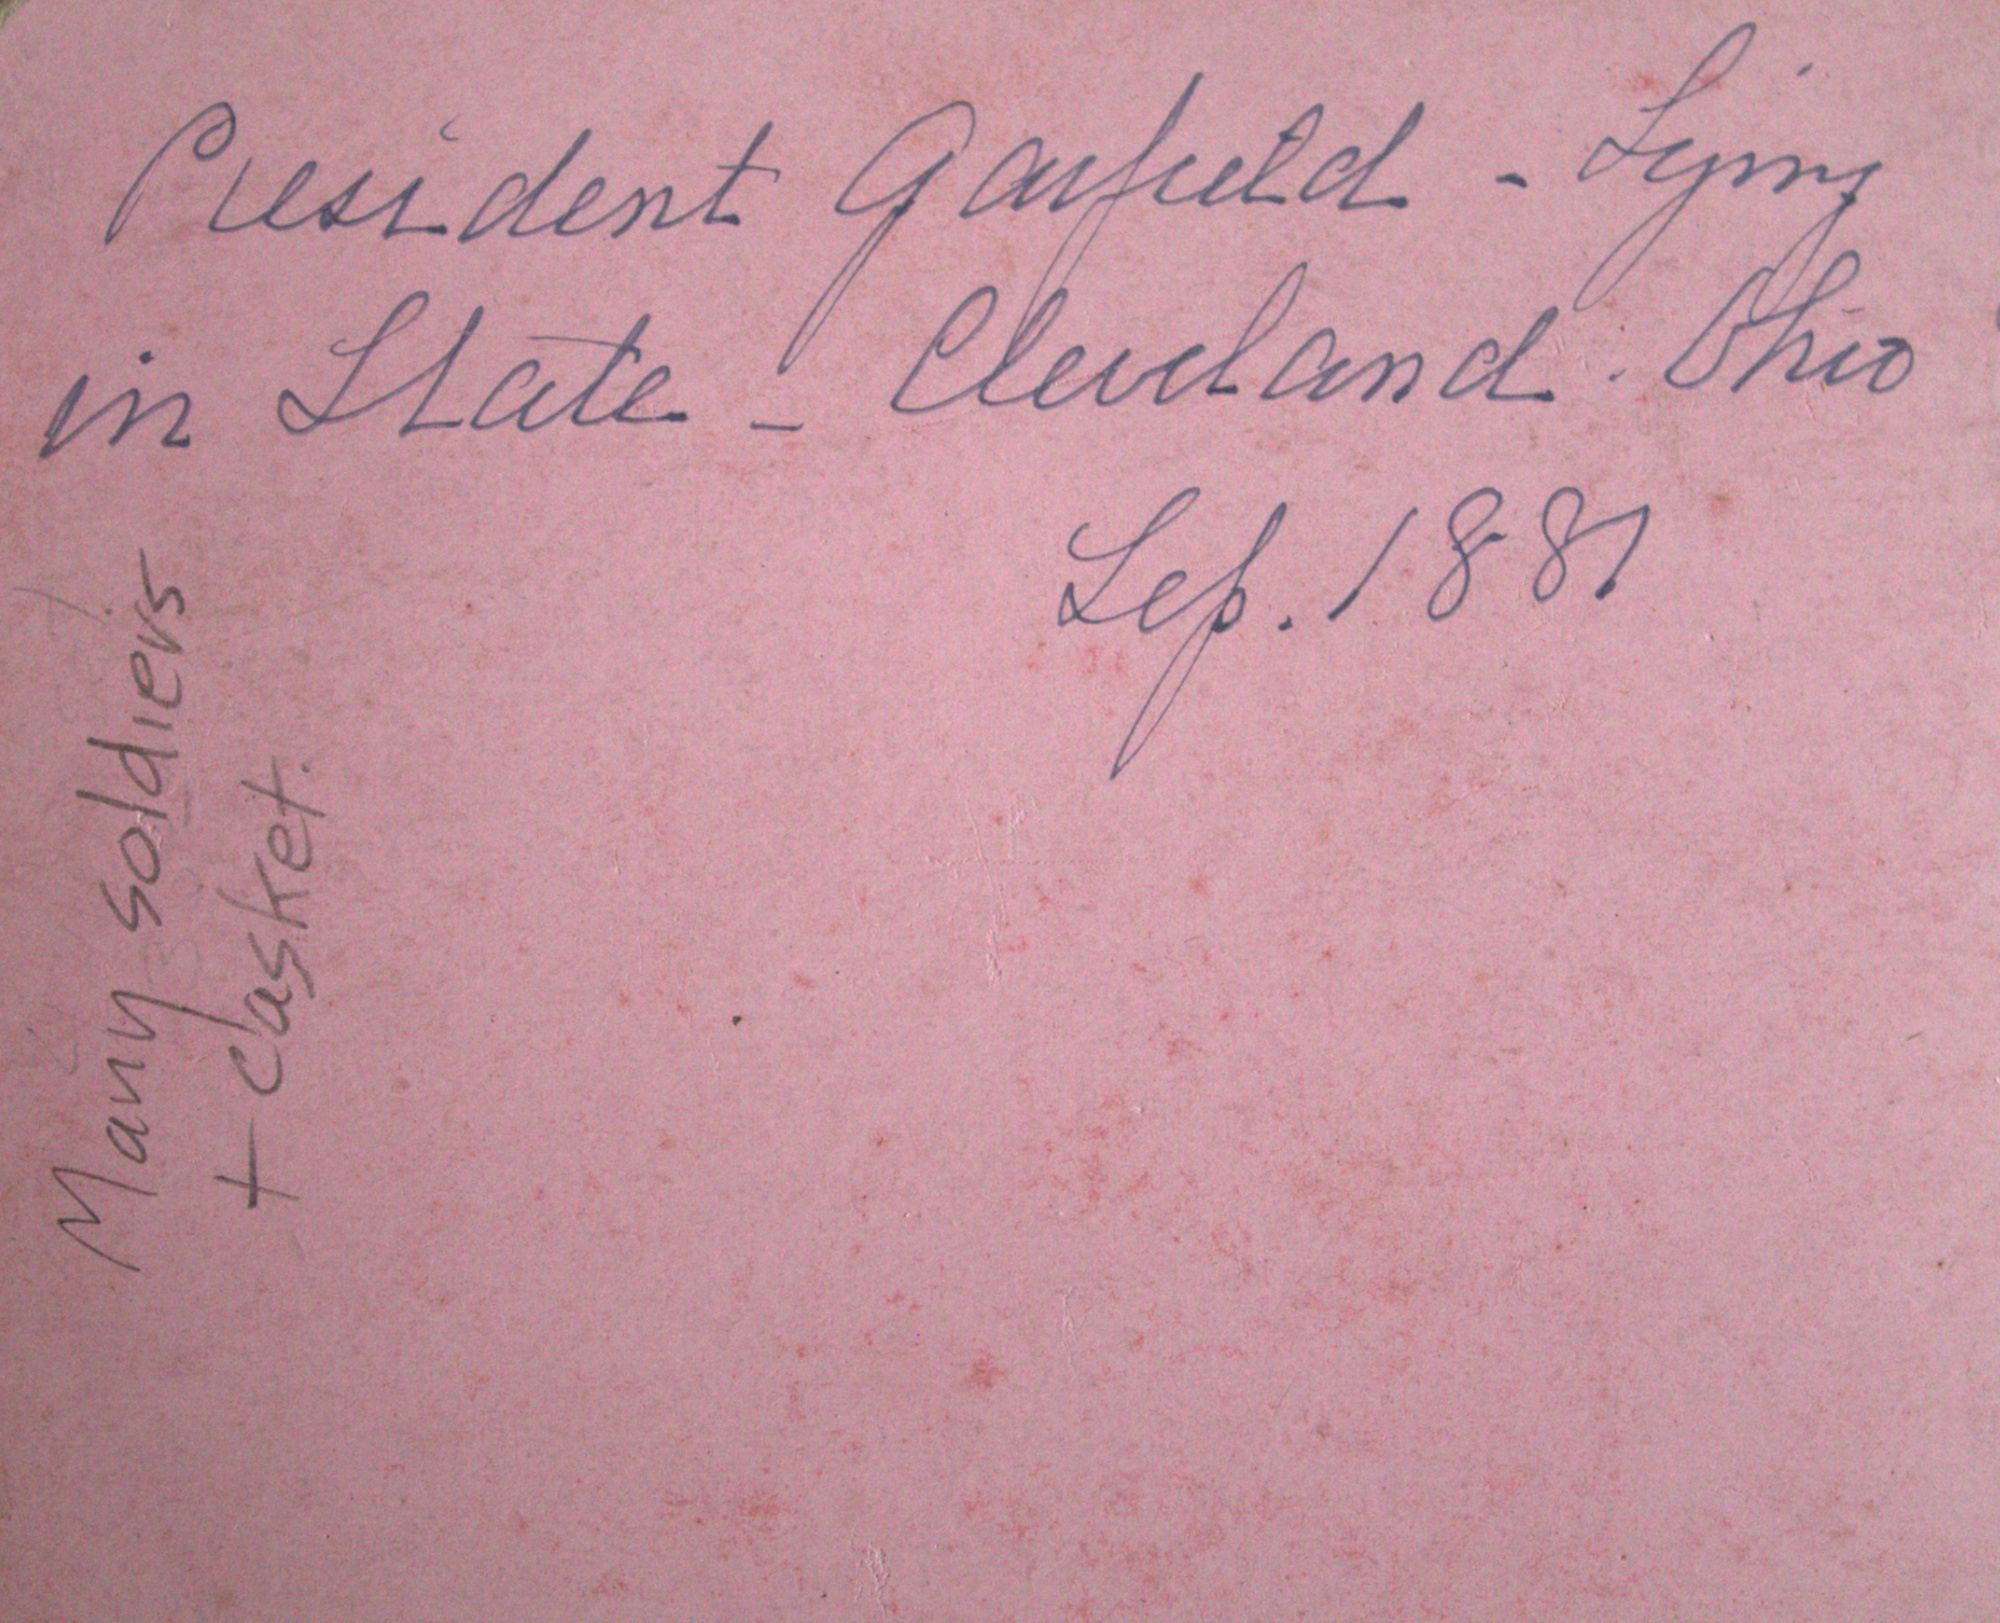 President Garfield - Lying
in State - Cleveland. Ohio
Sep. 1881
Many soldiers
+ casket.